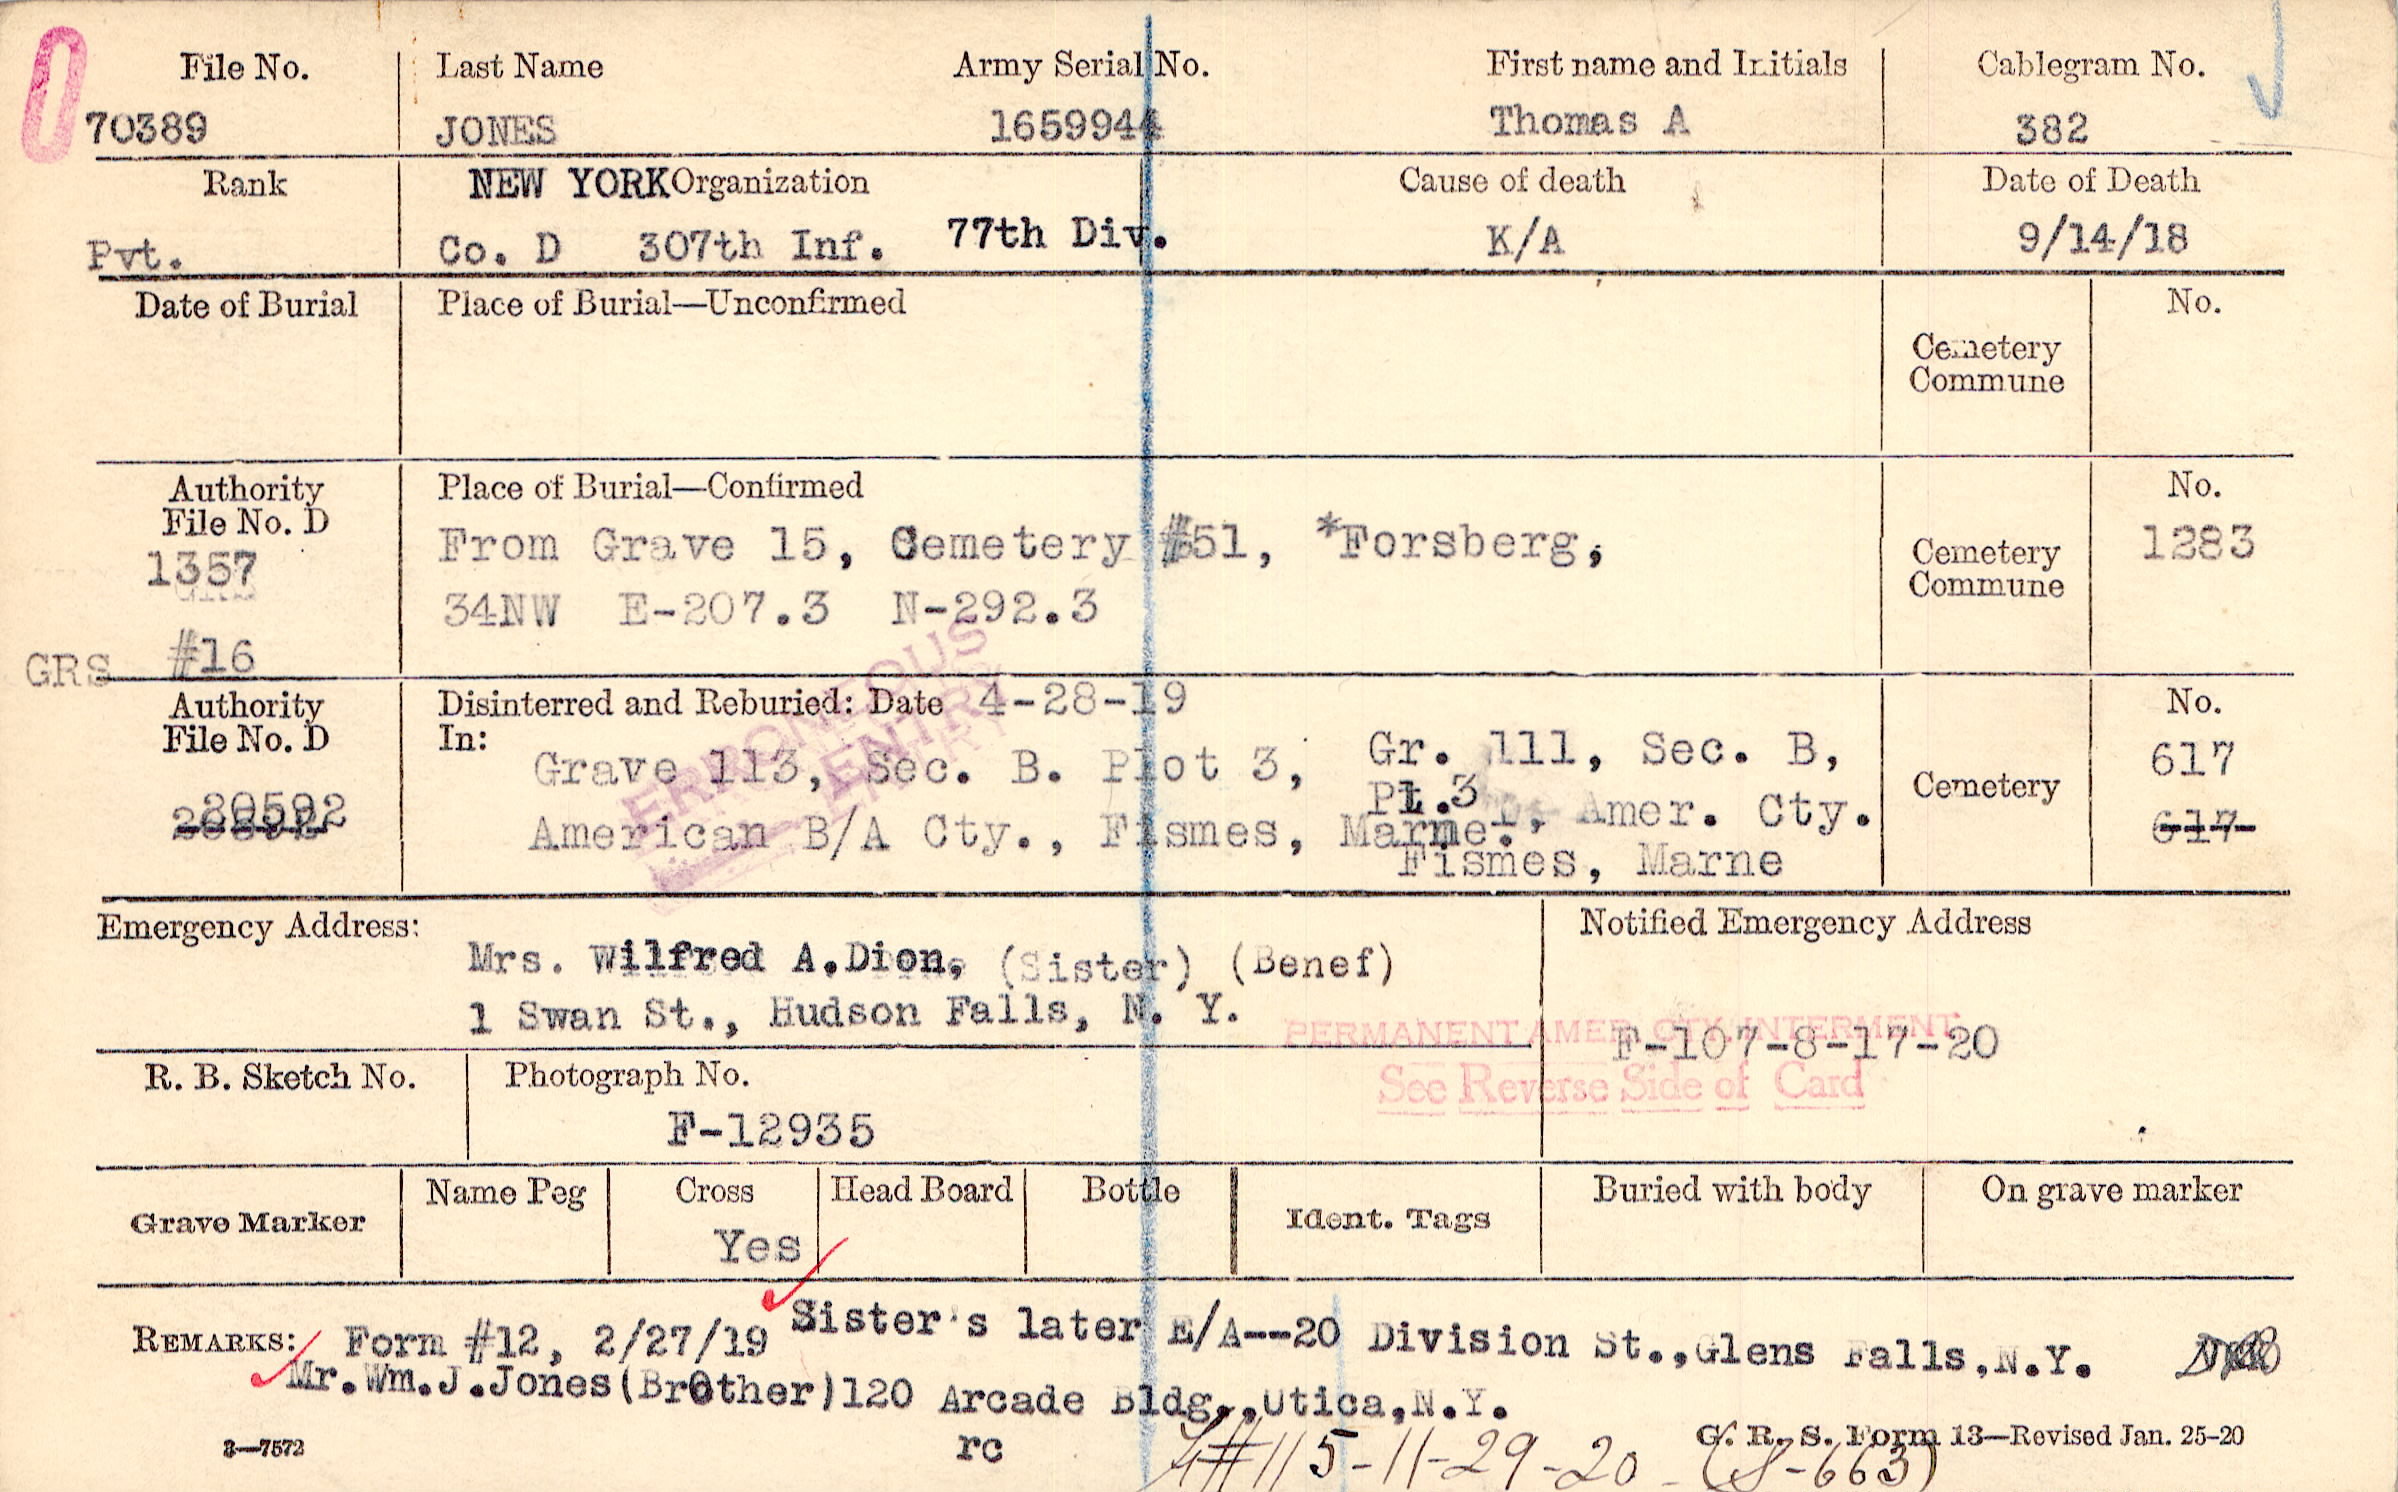 File No. Last Name Army Serial No. First name and Initials Cablegram No.
70389 JONES 1659944 Thomas A 382
Rank NEW YORK Organization Cause of death Date of Death
Pvt. Co. D 307th Inf. 77th Div. K/A 9/14/18
Date of Burial Place of Burial—Unconfirmed No.
Cemetery
Commune
Authority Place of Burial—Confirmed No.
File No. D
1357 From Grave 15, Cemetery #51, *Forsberg, Cemetery 1283
Commune
34NW E-207.3 N-292.3
GRS #16
Authority Disinterred and Reburied: Date 4-28-19 No.
File No. D In:
Grave 113, Sec. B. Plot 3, Gr. 111, Sec. B, 617
Pl.3 Amer. Cty. Cemetery
American B/A Cty., Fismes, Marne. 617
Fismes, Marne
ERRONEOUS
ENTRY
Emergency Address: Notified Emergency Address
Mrs. Wilfred A.Dion, (Sister) (Benef)
1 Swan St., Hudson Falls, N. Y.
PERMANENT AMER. CTY. INTERMENT
F-107-8-17-20
See Reverse Side of Card
R. B. Sketch No. Photograph No.
F-12935
Grave Marker Name Peg Cross Head Board Bottle Ident. Tags Buried with body On grave marker
Yes
REMARKS: Form #12, 2/27/19 Sister's later E/A--20 Division St.,Glens Falls,N.Y.
Mr.Wm.J.Jones(Brother)120 Arcade Bldg.,Utica,N.Y.
3—7572 rc G. R. S. Form 13—Revised Jan. 25-20
#115-11-29-20 - (S-663)